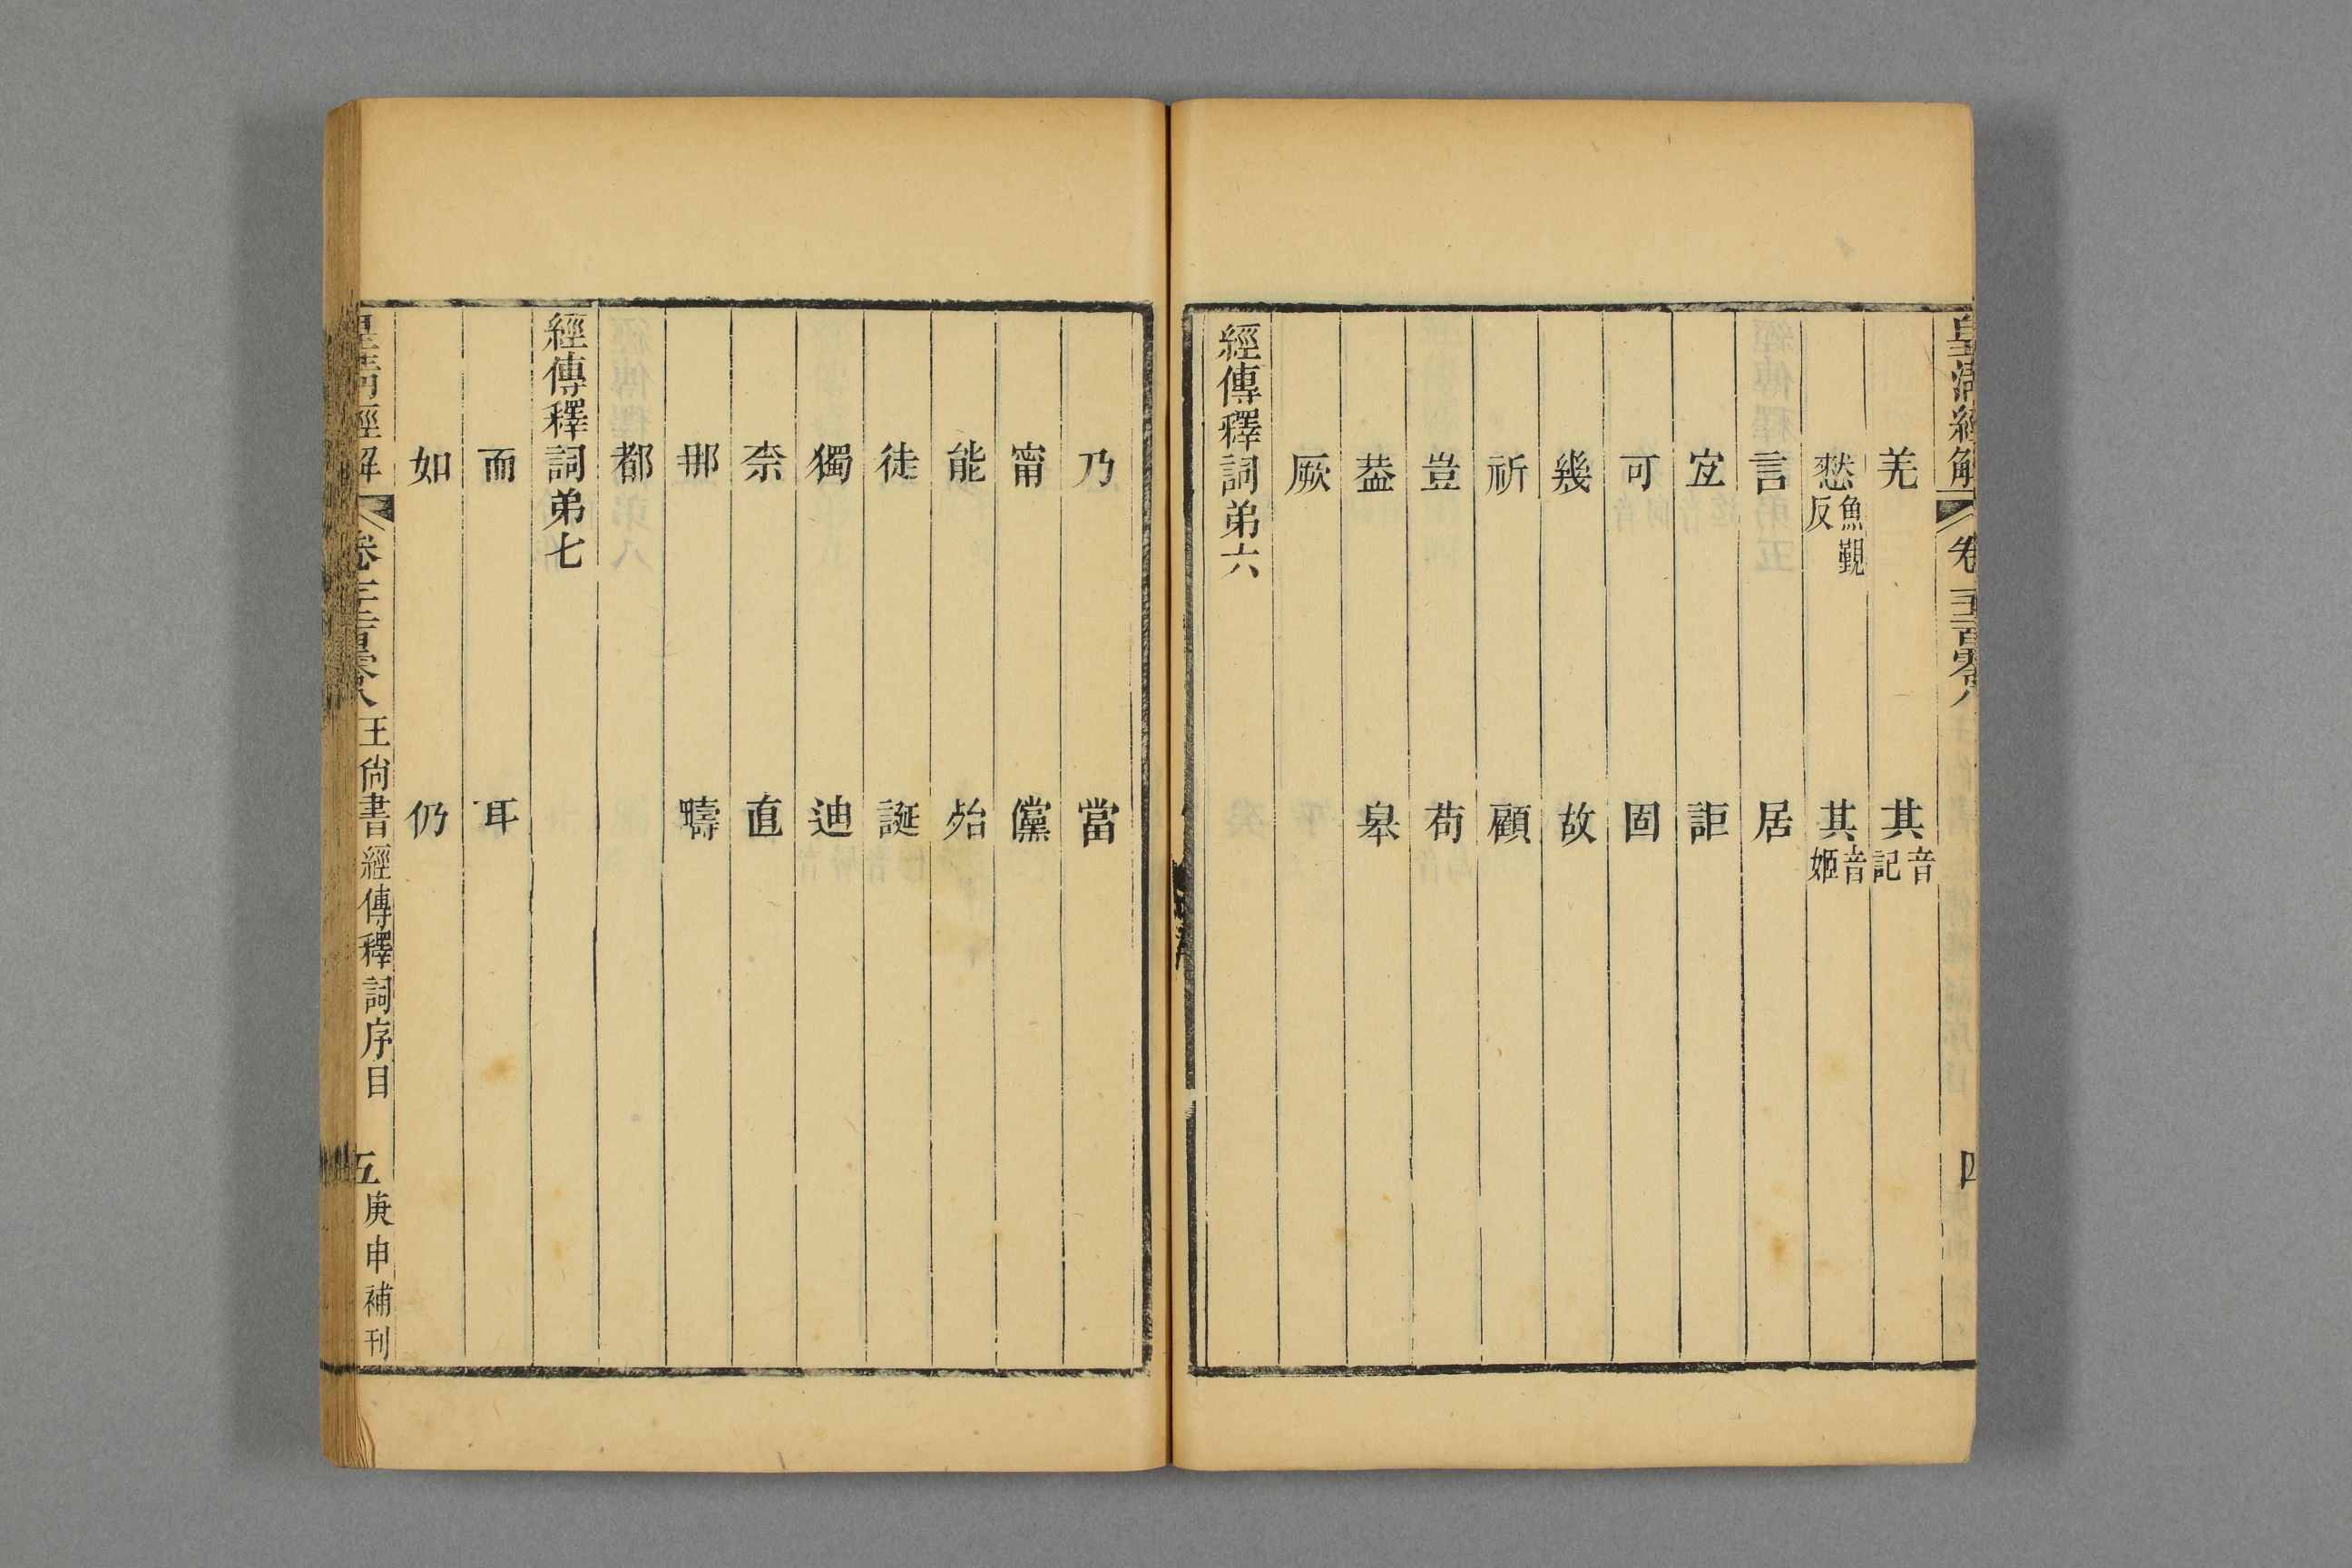 皇清經解 卷一千二百零八 四
羌 其音記
憖魚覲反 其音姬
言 居
宐 詎
可 固
幾 故
祈 顧
豈 苟
葢 皋
厥
經傳釋詞弟六
乃 當
甯 儻
能 殆
徒 誕
獨 迪
柰 直
那 疇
都
經傳釋詞弟七
而 耳
如 仍
皇清經解 卷一千二百零八 王尙書經傳釋詞序目 五 庚申補刊